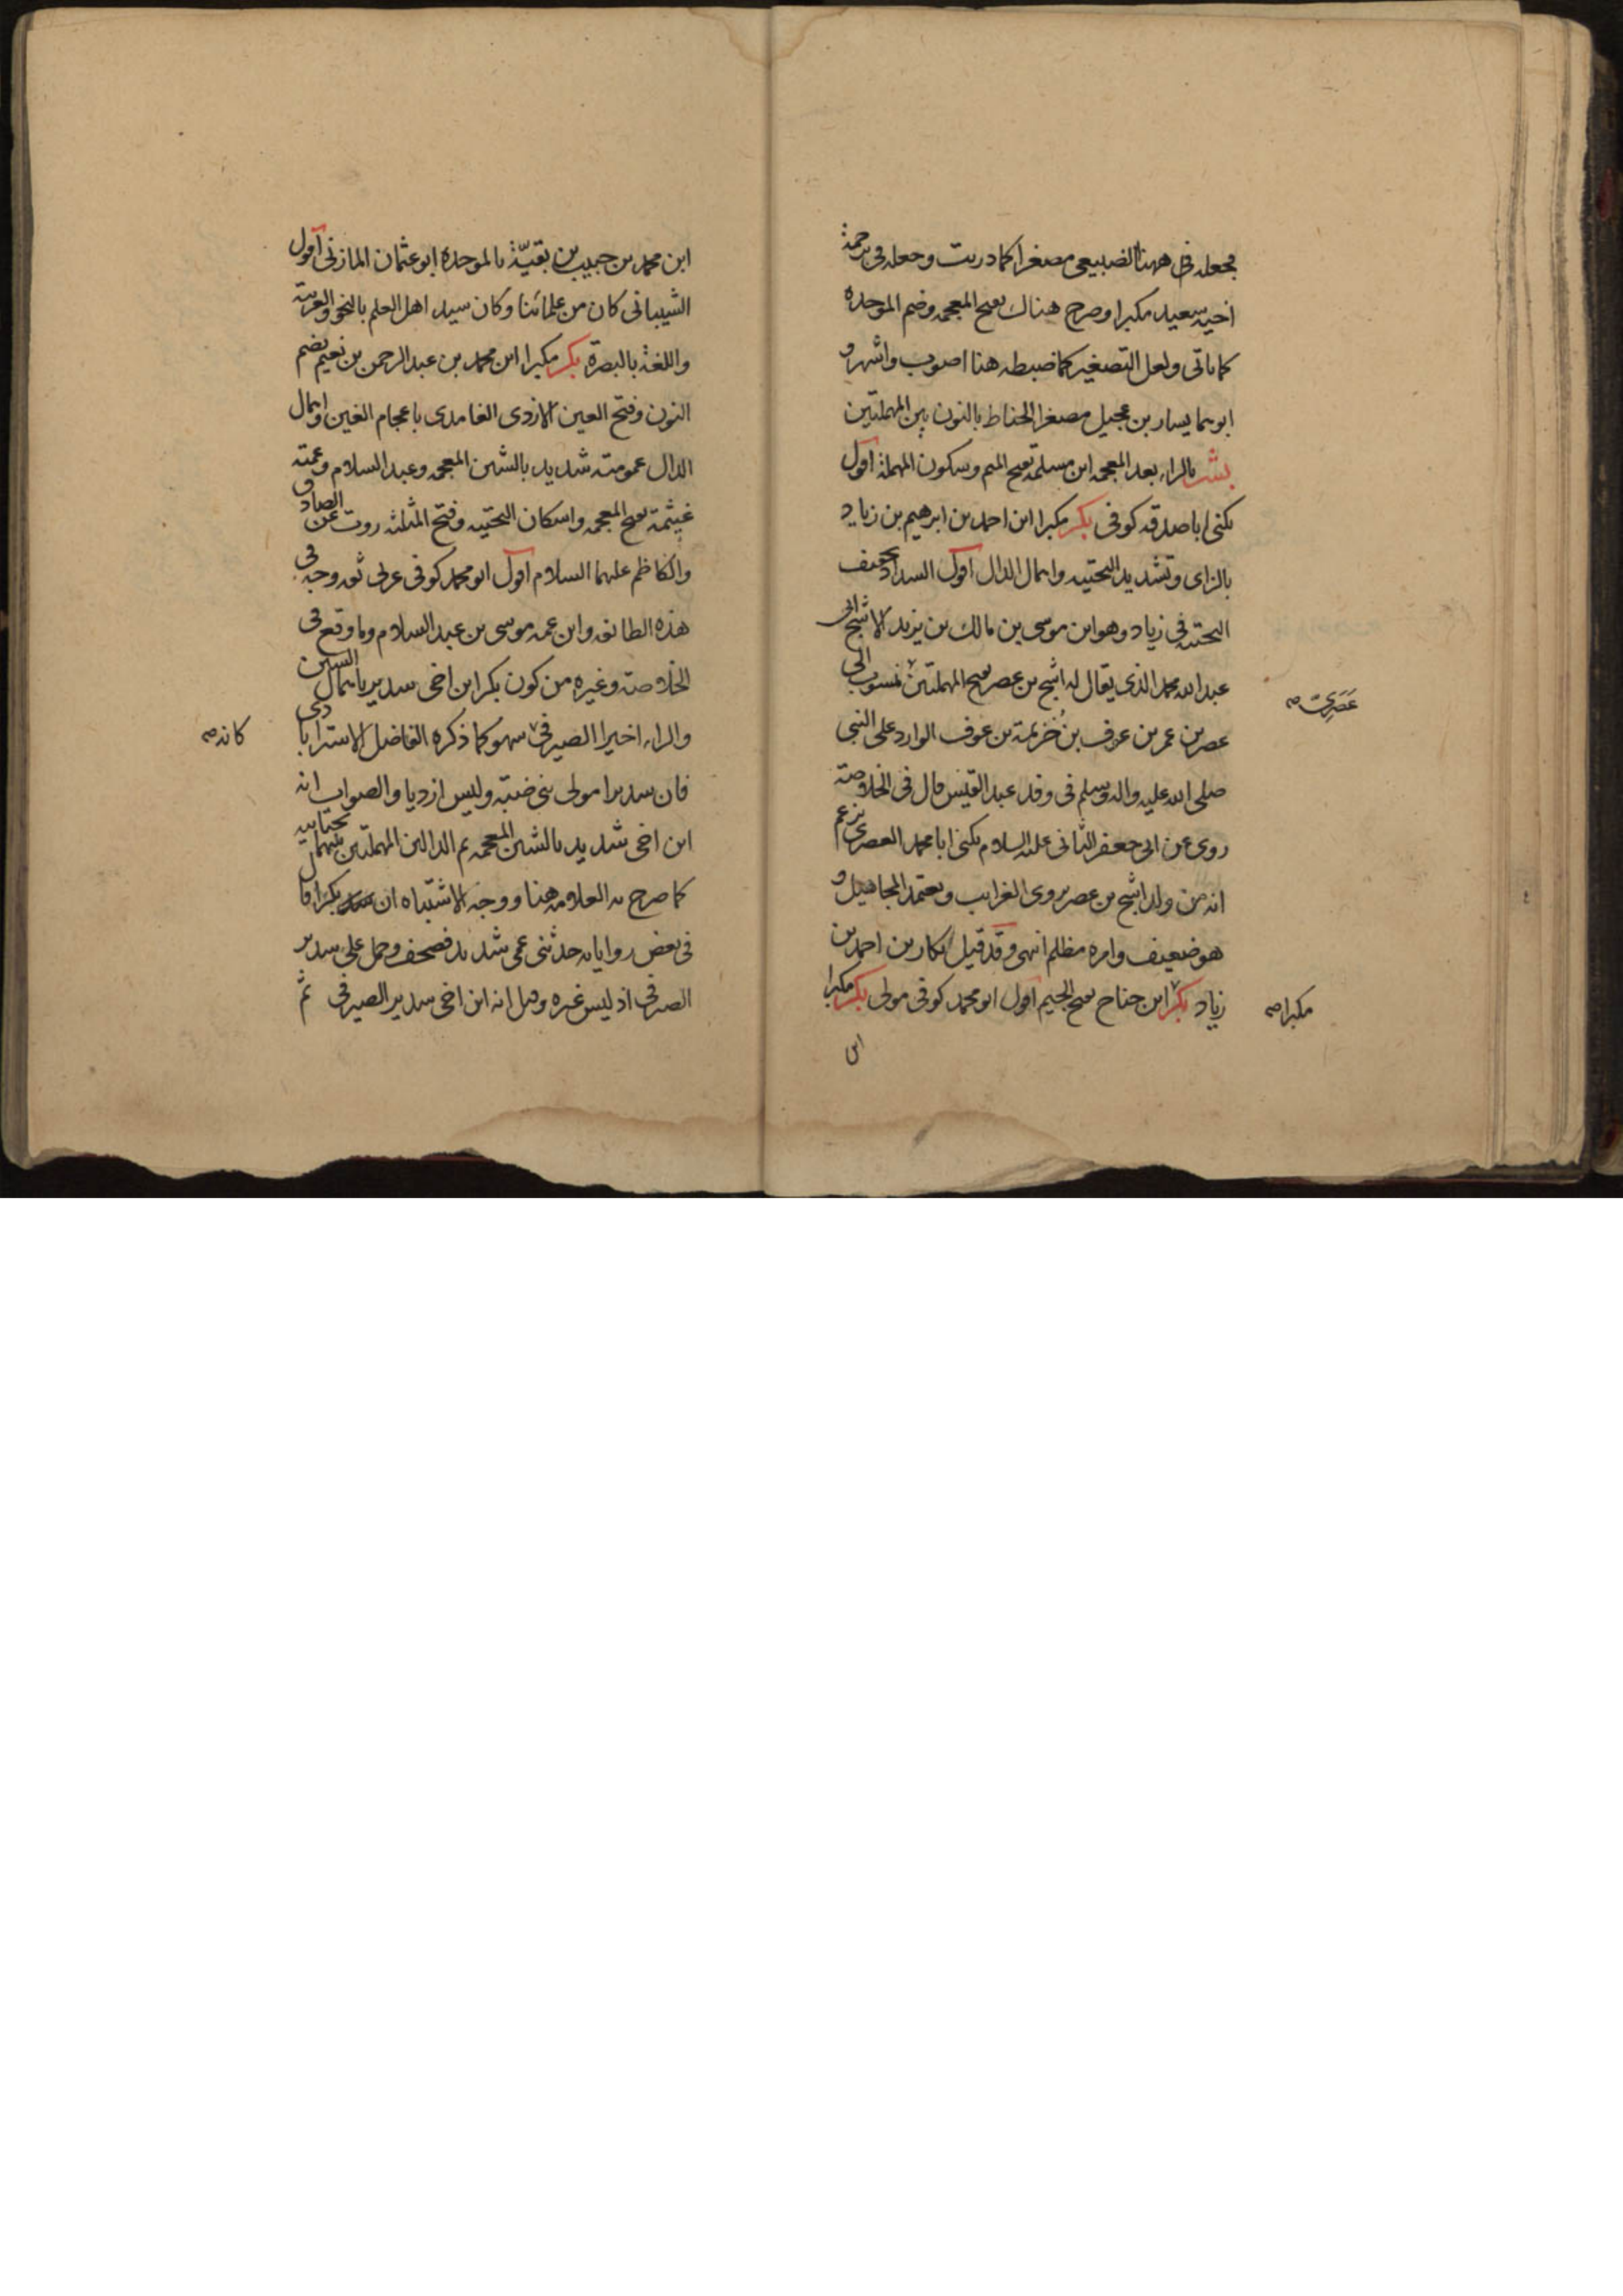 فجعله في ههنا الضبيعى مصغرا كما دريت وجعله فى ترجمة
اخيه سعيد مكبرا وصرح هناك بفتح المعجمه وضم الموحده
كما ياتى ولعل التصغير كما ضبطه هنا اصوب واشهر و
ابوهما يسار بن عجيل مصغرا الحناط بالنون بين المهملتين
بشر بالراء بعد المعجمه ابن مسلمه بفتح الميم وسكون المهملة اقول
يكنى ابا صدقه كوفى بكر مكبرا ابن احمد بن ابرهيم بن زياد
بالزاى وتشديد التحتيه واهمال الدال اقول السداد تخفيف
التحتيه فى زياد وهو ابن موسى بن مالك بن يزيد الاشج ابى
عبد الله محمد الذى يقال له اشج بن عصر بفتح المهملتين منسوب الى
عصرى صح
عصر بن عمر بن عوف بن خزيمة بن عوف الوارد على النبى
صلى الله عليه واله وسلم فى وفد عبد القيس قال فى الخلاصة
روى عن ابى جعفر الثانى عليه السلام يكنى ابا محمد العصرى يزعم
انه من ولد اشج بن عصر يروى الغرايب ويعتمد المجاهيل و
هو ضعيف وامره مظلم انتهى وقد قيل بكار بن احمد بن
زياد بكر ابن جناح بفتح الجيم اقول ابو محمد كوفى مولى بكر مكبرا
مكبرا صح
ابن
ابن محمد بن حبيب بن بقيّة بالموحده ابو عثمان المازنى اقول
الشيبانى كان من علمائنا وكان سيد اهل العلم بالنحو والعربية
واللغة بالبصرة بكر مكبرا ابن محمد بن عبد الرحمن بن نعيم بضم
النون وفتح العين الازدى الغامدى باعجام الغين واهمال
الدال عمومته شديد بالشين المعجمه وعبد السلام وعمته
غيثمة بفتح المعجمه واسكان التحتيه وفتح المثلثه روت عن الصادق
والكاظم عليهما السلام اقول ابو محمد كوفى عربى ثقه وجه فى
هذه الطائفه وابن عمه موسى بن عبد السلام وما وقع فى
الخلاصة وغيره من كون بكر ابن اخى سدير باهمال السين
والراء اخيرا الصيرفى سهو كما ذكره الفاضل الاسترابادى
كانه صح
فان سديرا مولى بنى ضبه وليس ازديا والصواب انه
ابن اخى شديد بالشين المعجمه ثم الدالين المهملتين بينهما تحتانيه
كما صرح به العلامه هنا ووجه الاشتباه ان بكرا قال
فى بعض رواياته حدثنى عمى شديد فصحف وحمل على سدير
الصيرفى اذ ليس غيره وقيل انه ابن اخى سدير الصيرفى ثم